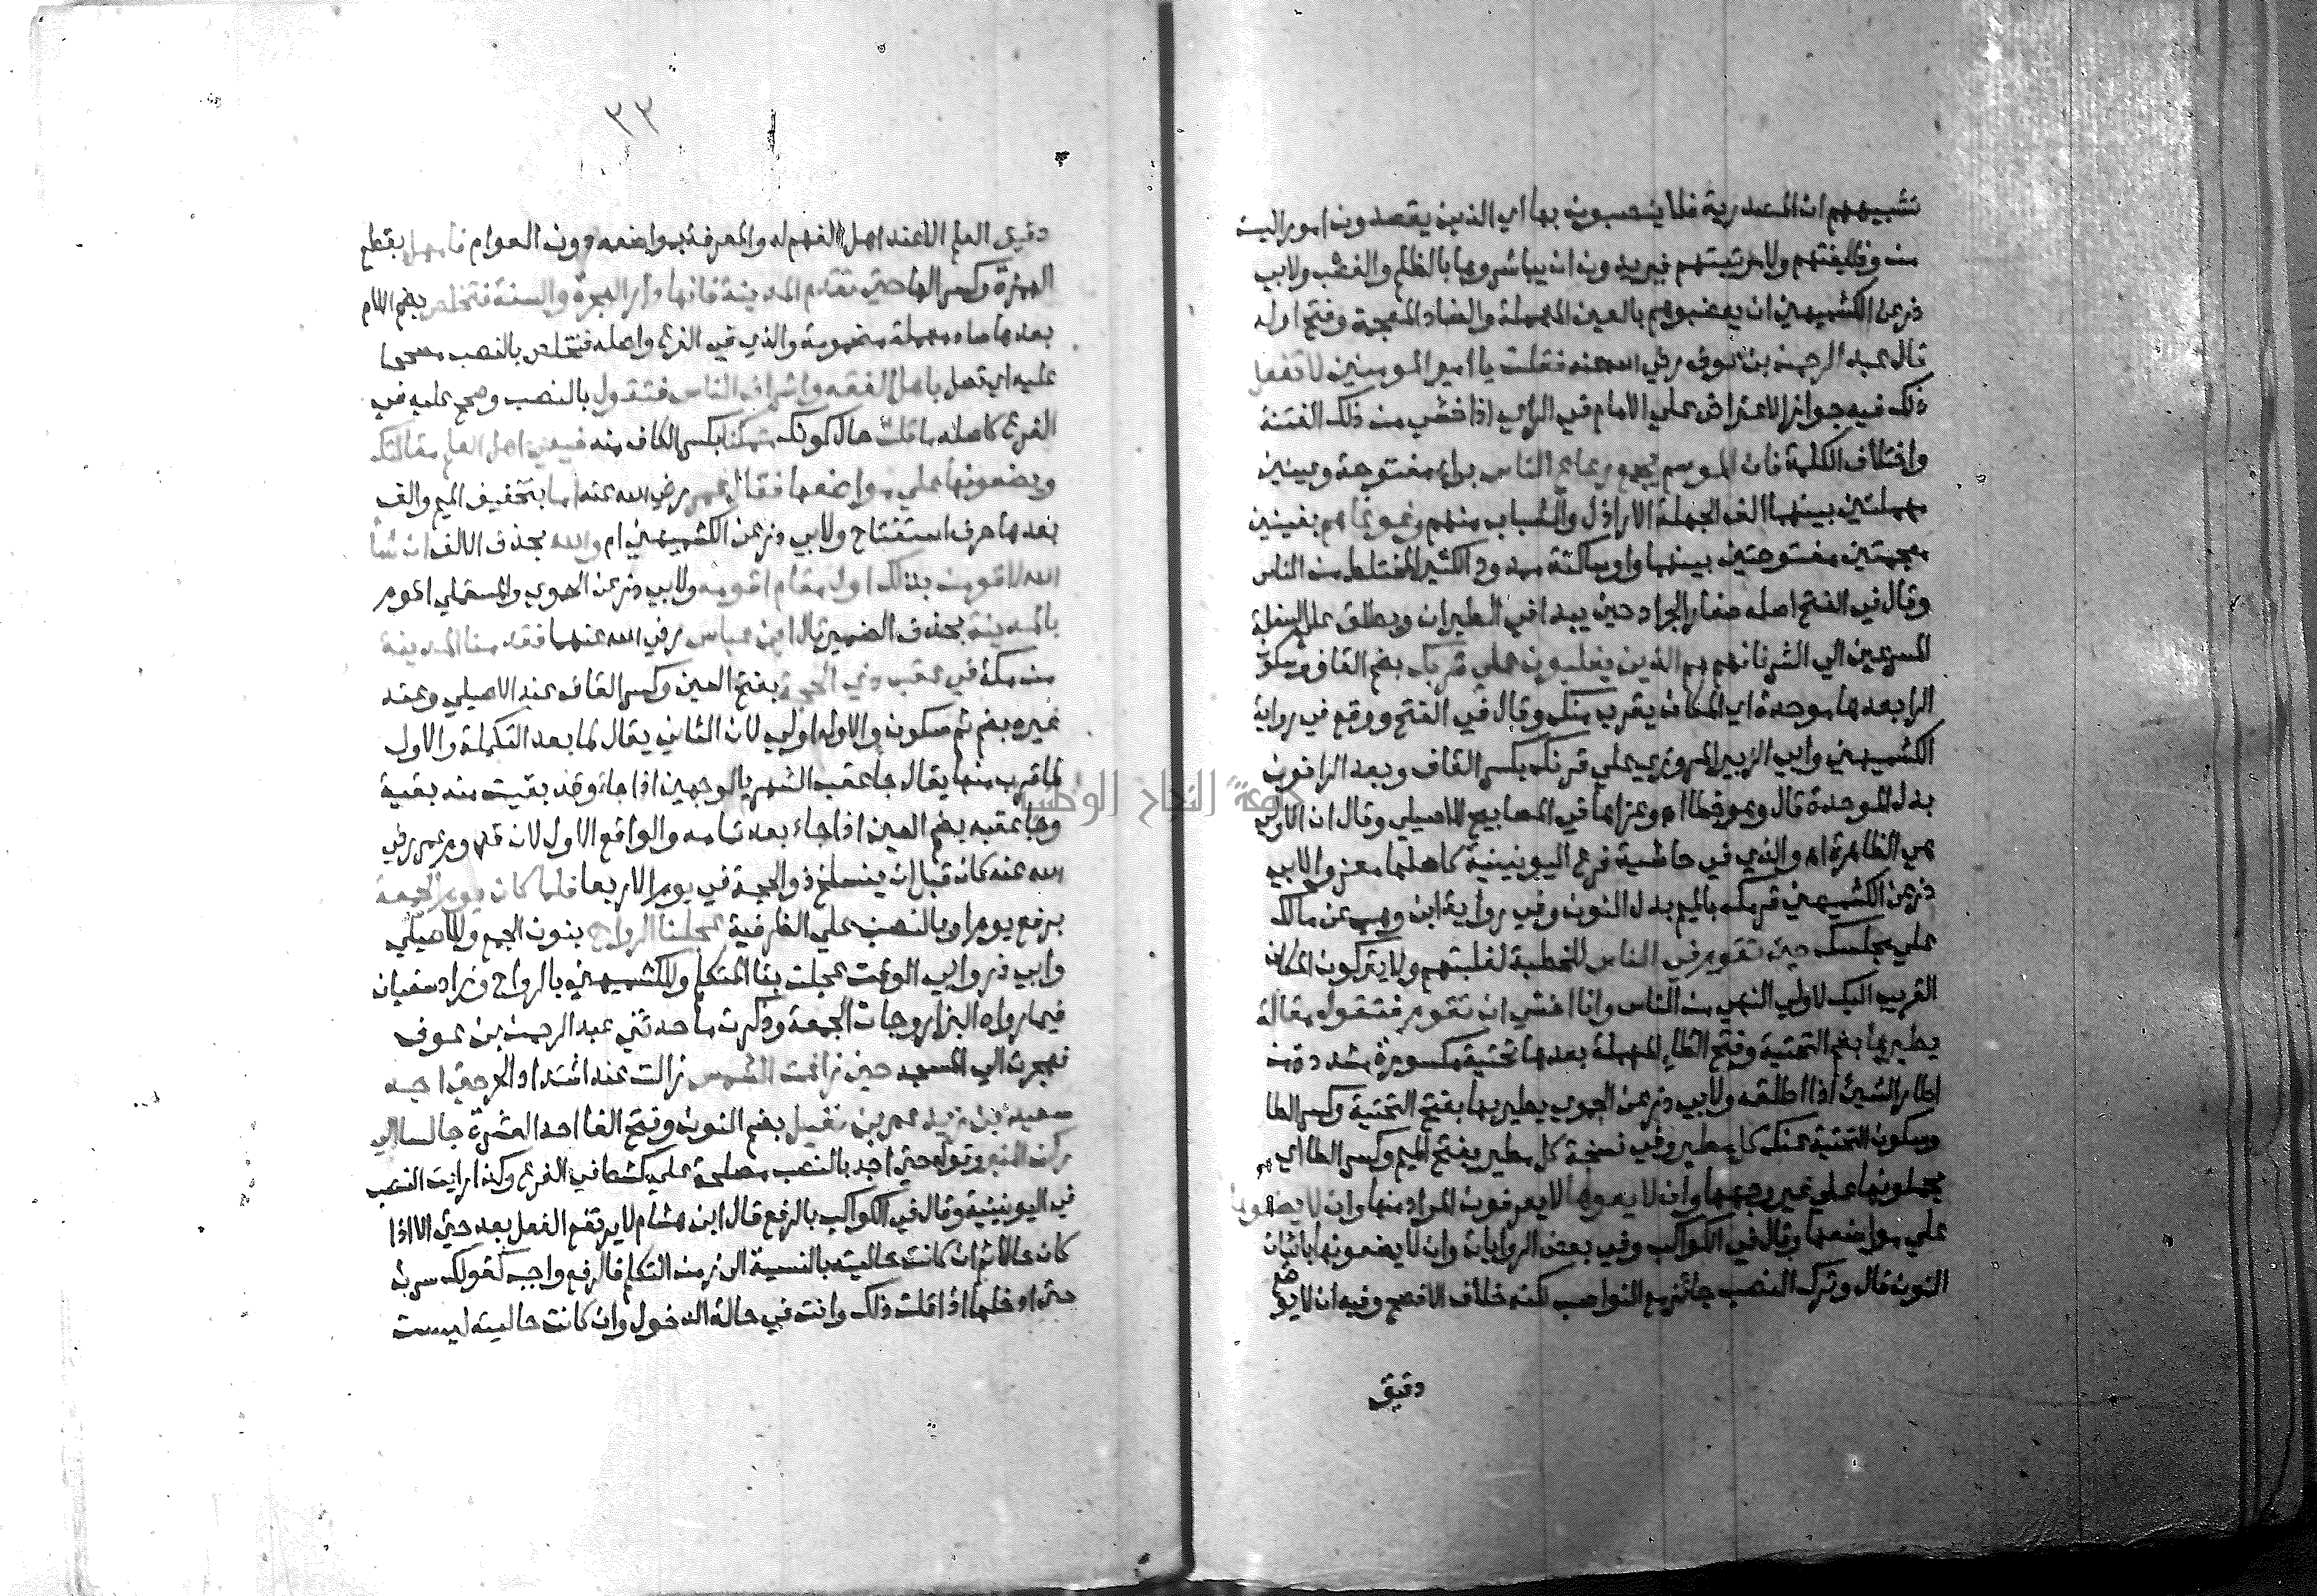 تشبيههم ان المصدرية فلا ينصبون بها اي الذين يقصدون امورا ليست
من وظيفتهم ولا مرتبتهم فيريدون ان يباشروها بالظلم والغضب ولابي
ذر عن الكشميهني ان يعضبوهم بالعين المهملة والضاد المعجمة وفتح اوله
قال عبد الرحمن بن عوف رضي الله عنه فقلت يا امير المومنين لا تفعل
ذلك فيه جواز الاعتراض علي الامام في الراي اذا خشي من ذلك الفتنة
واختلاف الكلمة فان الموسم يجمع رعاع الناس براء مفتوحة وعينين
مهملتين بينهما الف الجهلة الاراذل والشباب منهم وغوغاهم بغينين
معجمتين مفتوحتين بينهما واو ساكنة ممدود الكثير المختلط من الناس
وقال في الفتح اصله صغار الجراد حين يبدا في الطيران ويطلق علي السفلة
المسرعين الي الشر فانهم هم الذين يغلبون علي قربك بضم القاف وسكون
الرا بعدها موحدة اي المكان يقرب منك وقال في الفتح ووقع في رواية
الكشميهني وابي الزبير المروزي علي قرنك بكسر القاف وبعد الرا نون
بدل الموحدة قال وهو خطا اه وعزاها في المصابيح للاصيلي وقال ان الاولي
هي الظاهرة اه والذي في حاشية فرع اليونينية كاصلها معزو لابي
ذر عن الكشميهني قرمك بالميم بدل النون وفي رواية ابن وهب عن مالك
علي مجلسك حين تقوم في الناس للخطبة لغلبتهم ولا يتركون المكان
القريب اليك لاولي النهي من الناس وانا اخشي ان تقوم فتقول مقالة
يطيرها بضم التحتية وفتح الطاء المهملة بعدها تحتية مكسورة مشددة من
اطار الشيئ اذا اطلقه ولابي ذر عن الحموي يطير بها بفتح التحتية وكسر الطا
وسكون التحتية عنك كل مطير وفي نسخة كل مطير بفتح الميم وكسر الطا اي
يحملونها علي غير وجهها وان لا يعوها لا يعرفون المراد منها وان لا يضعوها
علي مواضعها وقال في الكواكب وفي بعض الروايات وان لا يضعونها باثبات
النون قال وترك النصب جائز مع النواصب لكنه خلاف الافصح وفيه ان لا يوضع
دقيق
٣٣
دقيق العلم الا عند اهل الفهم له والمعرفة بمواضعه دون العوام فامهل بقطع
الهمزة وكسر الها حتي تقدم المدينة فانها دار الهجرة والسنة فتخلص بضم اللام
بعدها صاد مهملة مضمومة والذي في الفرع واصله فتخلص بالنصب مصححا
عليه اي تصل باهل الفقه واشراف الناس فتقول بالنصب وصحح عليه في
الفرع كاصله ما قلت حال كونك متمكنا بكسر الكاف منه فيعي اهل العلم مقالتك
ويضعونها علي مواضعها فقال عمر رضي الله عنه اما بتخفيف الميم والف
بعدها حرف استفتاح ولابي ذر عن الكشميهني ام والله بحذف الالف ان شأ
الله لاقومن بذلك اول مقام اقومه ولابي ذر عن الحموي والمستملي اقوم
بالمدينة بحذف الضمير قال ابن عباس رضي الله عنهما فقدمنا المدينة
من مكة في عقب ذي الحجة بفتح العين وكسر القاف عند الاصيلي وعند
غيره بضم ثم سكون والاول اولي لان الثاني يقال لما بعد التكملة والاول
لما قرب منها يقال جا عقب الشهر بالوجهين اذا جاء وقد بقيت منه بقية
وجا عقبه بضم العين اذا جاء بعد تمامه والواقع الاول لان قدوم عمر رضي
الله عنه كان قبل ان ينسلخ ذو الحجة في يوم الاربعا فلما كان يوم الجمعة
برفع يوم او بالنصب علي الظرفية عجلنا الرواح بنون الجمع وللاصيلي
وابي ذر وابي الوقت عجلت بتا المتكلم وللكشميهني بالرواح وزاد سفيان
فيما رواه البزار وجات الجمعة وذكرت ما حدثني عبد الرحمن بن عوف
فهجرت الي المسجد حين زاغت الشمس زالت عند اشتداد الحر حتي اجد
سعيد بن زيد عمر بن نفيل بضم النون وفتح الفا احد العشرة جالسا الي
ركن المنبر وقوله حتي اجد بالنصب مصلحة علي كشط في الفرع وكذا رايت النصب
في اليونينية وقال في الكواكب بالرفع قال ابن هشام لا يرتفع الفعل بعد حتي الا اذا
كان حالا ثم ان كانت حاليته بالنسبة الي زمن التكلم فالرفع واجب كقولك سرت
حتي ادخلها اذا قلت ذلك وانت في حالة الدخول وان كانت حاليته ليست